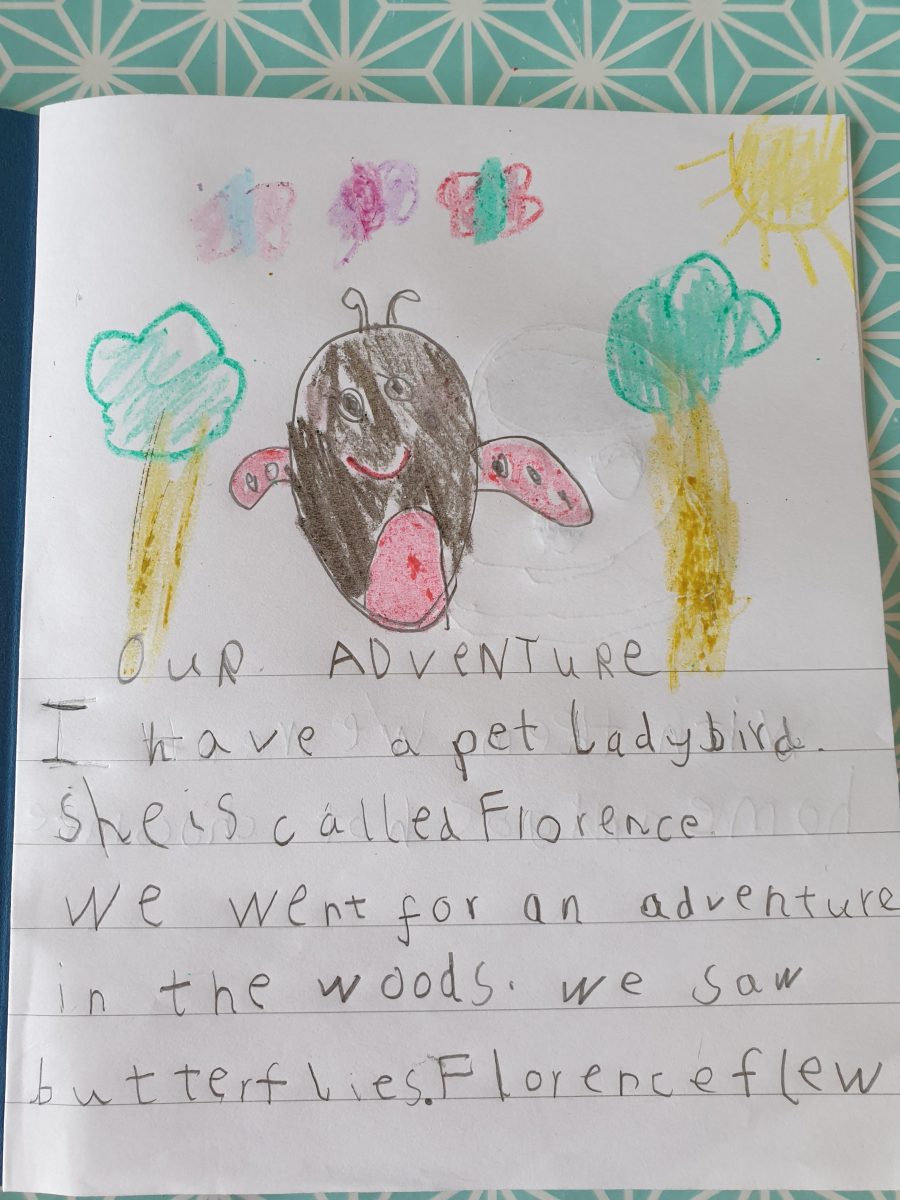 OUR ADVENTURE
I have a pet Ladybird.
She is called Florence.
We went for an adventure
in the woods. we saw
butterflies. Florence flew